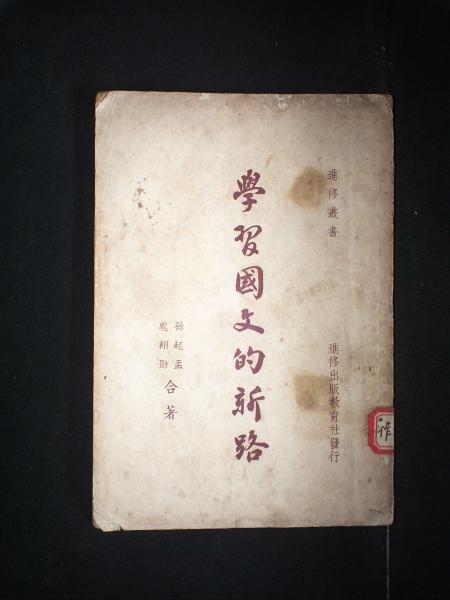 進修叢書
進修出版教育社發行
學習國文的新路
孫起孟
龐翔勛
合著
作